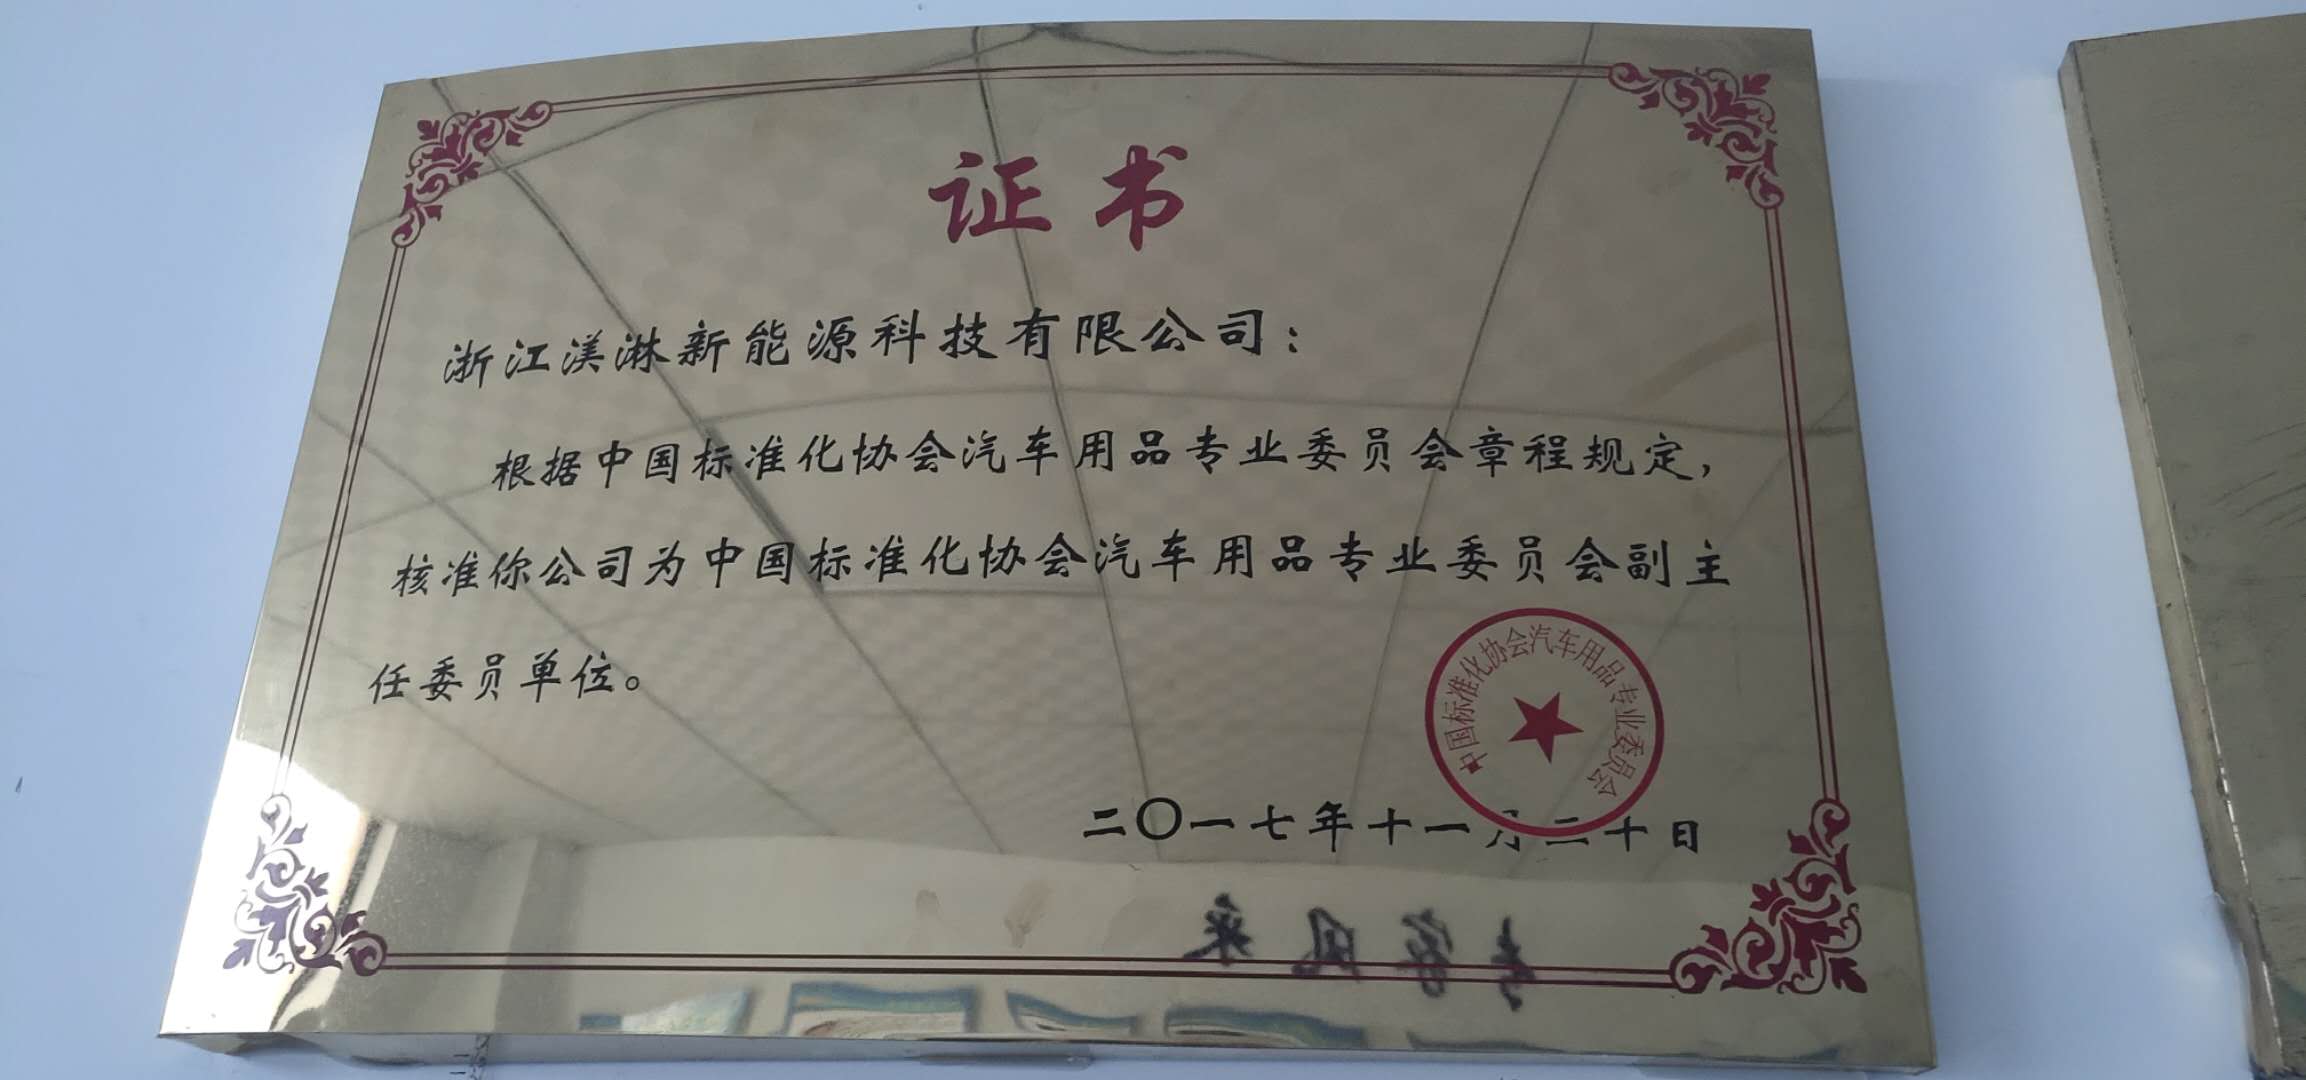 证书
浙江渼淋新能源科技有限公司：
根据中国标准化协会汽车用品专业委员会章程规定，
核准你公司为中国标准化协会汽车用品专业委员会副主
任委员单位。
中国标准化协会汽车用品专业委员会
二〇一七年十一月二十日